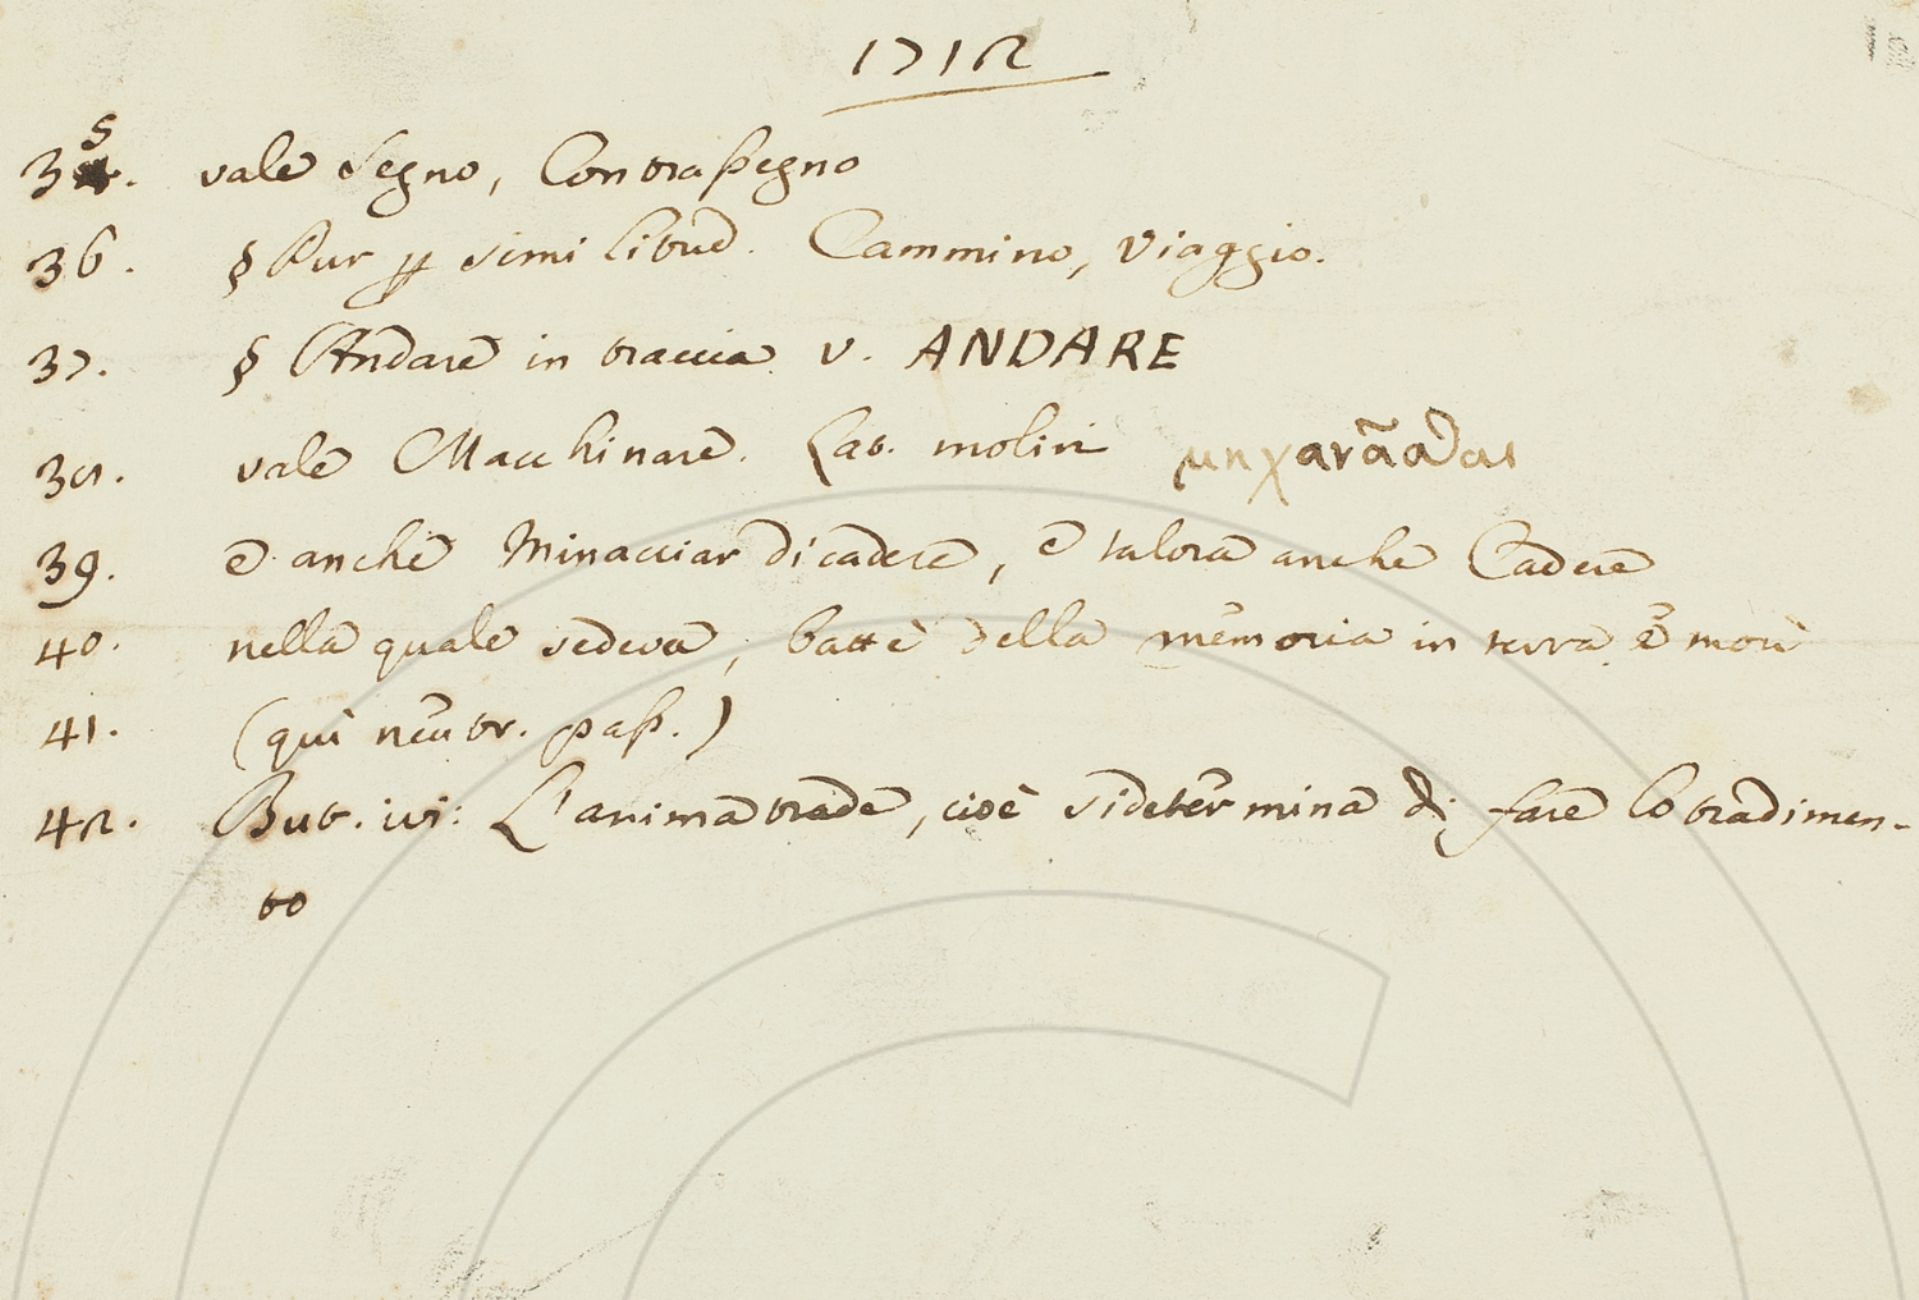 1712
35. vale Segno, Contrassegno
36. § Pur ꝑ similitud. Cammino, Viaggio.
37. § Andare in traccia v. ANDARE
38. vale Macchinare. Lat. moliri μηχανᾶσθαι
39. e anche Minacciar di cadere, e talora anche Cadere
40. nella quale sedeva, battè della memoria in terra e morì
41. (qui neutr. pass.)
42. But. ivi: L'anima trade, cioè si determina di fare lo tradimen-
to